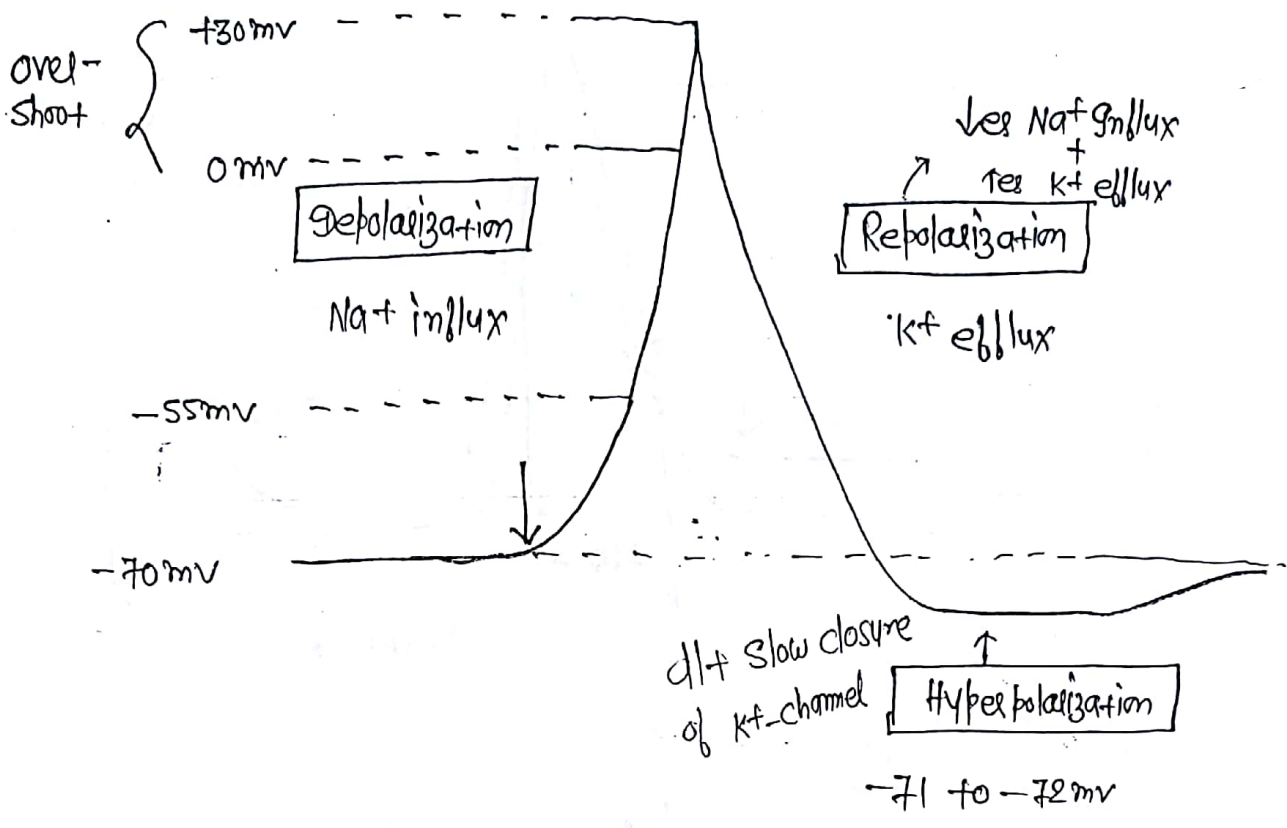 +30mv
Over-
Shoot
0mv
Depolarization
Na+ influx
↓es Na+ Influx
+
↑es K+ efflux
Repolarization
K+ efflux
-55mv
-70mv
d/t Slow closure
of K+-channel
Hyperpolarization
-71 to -72mv